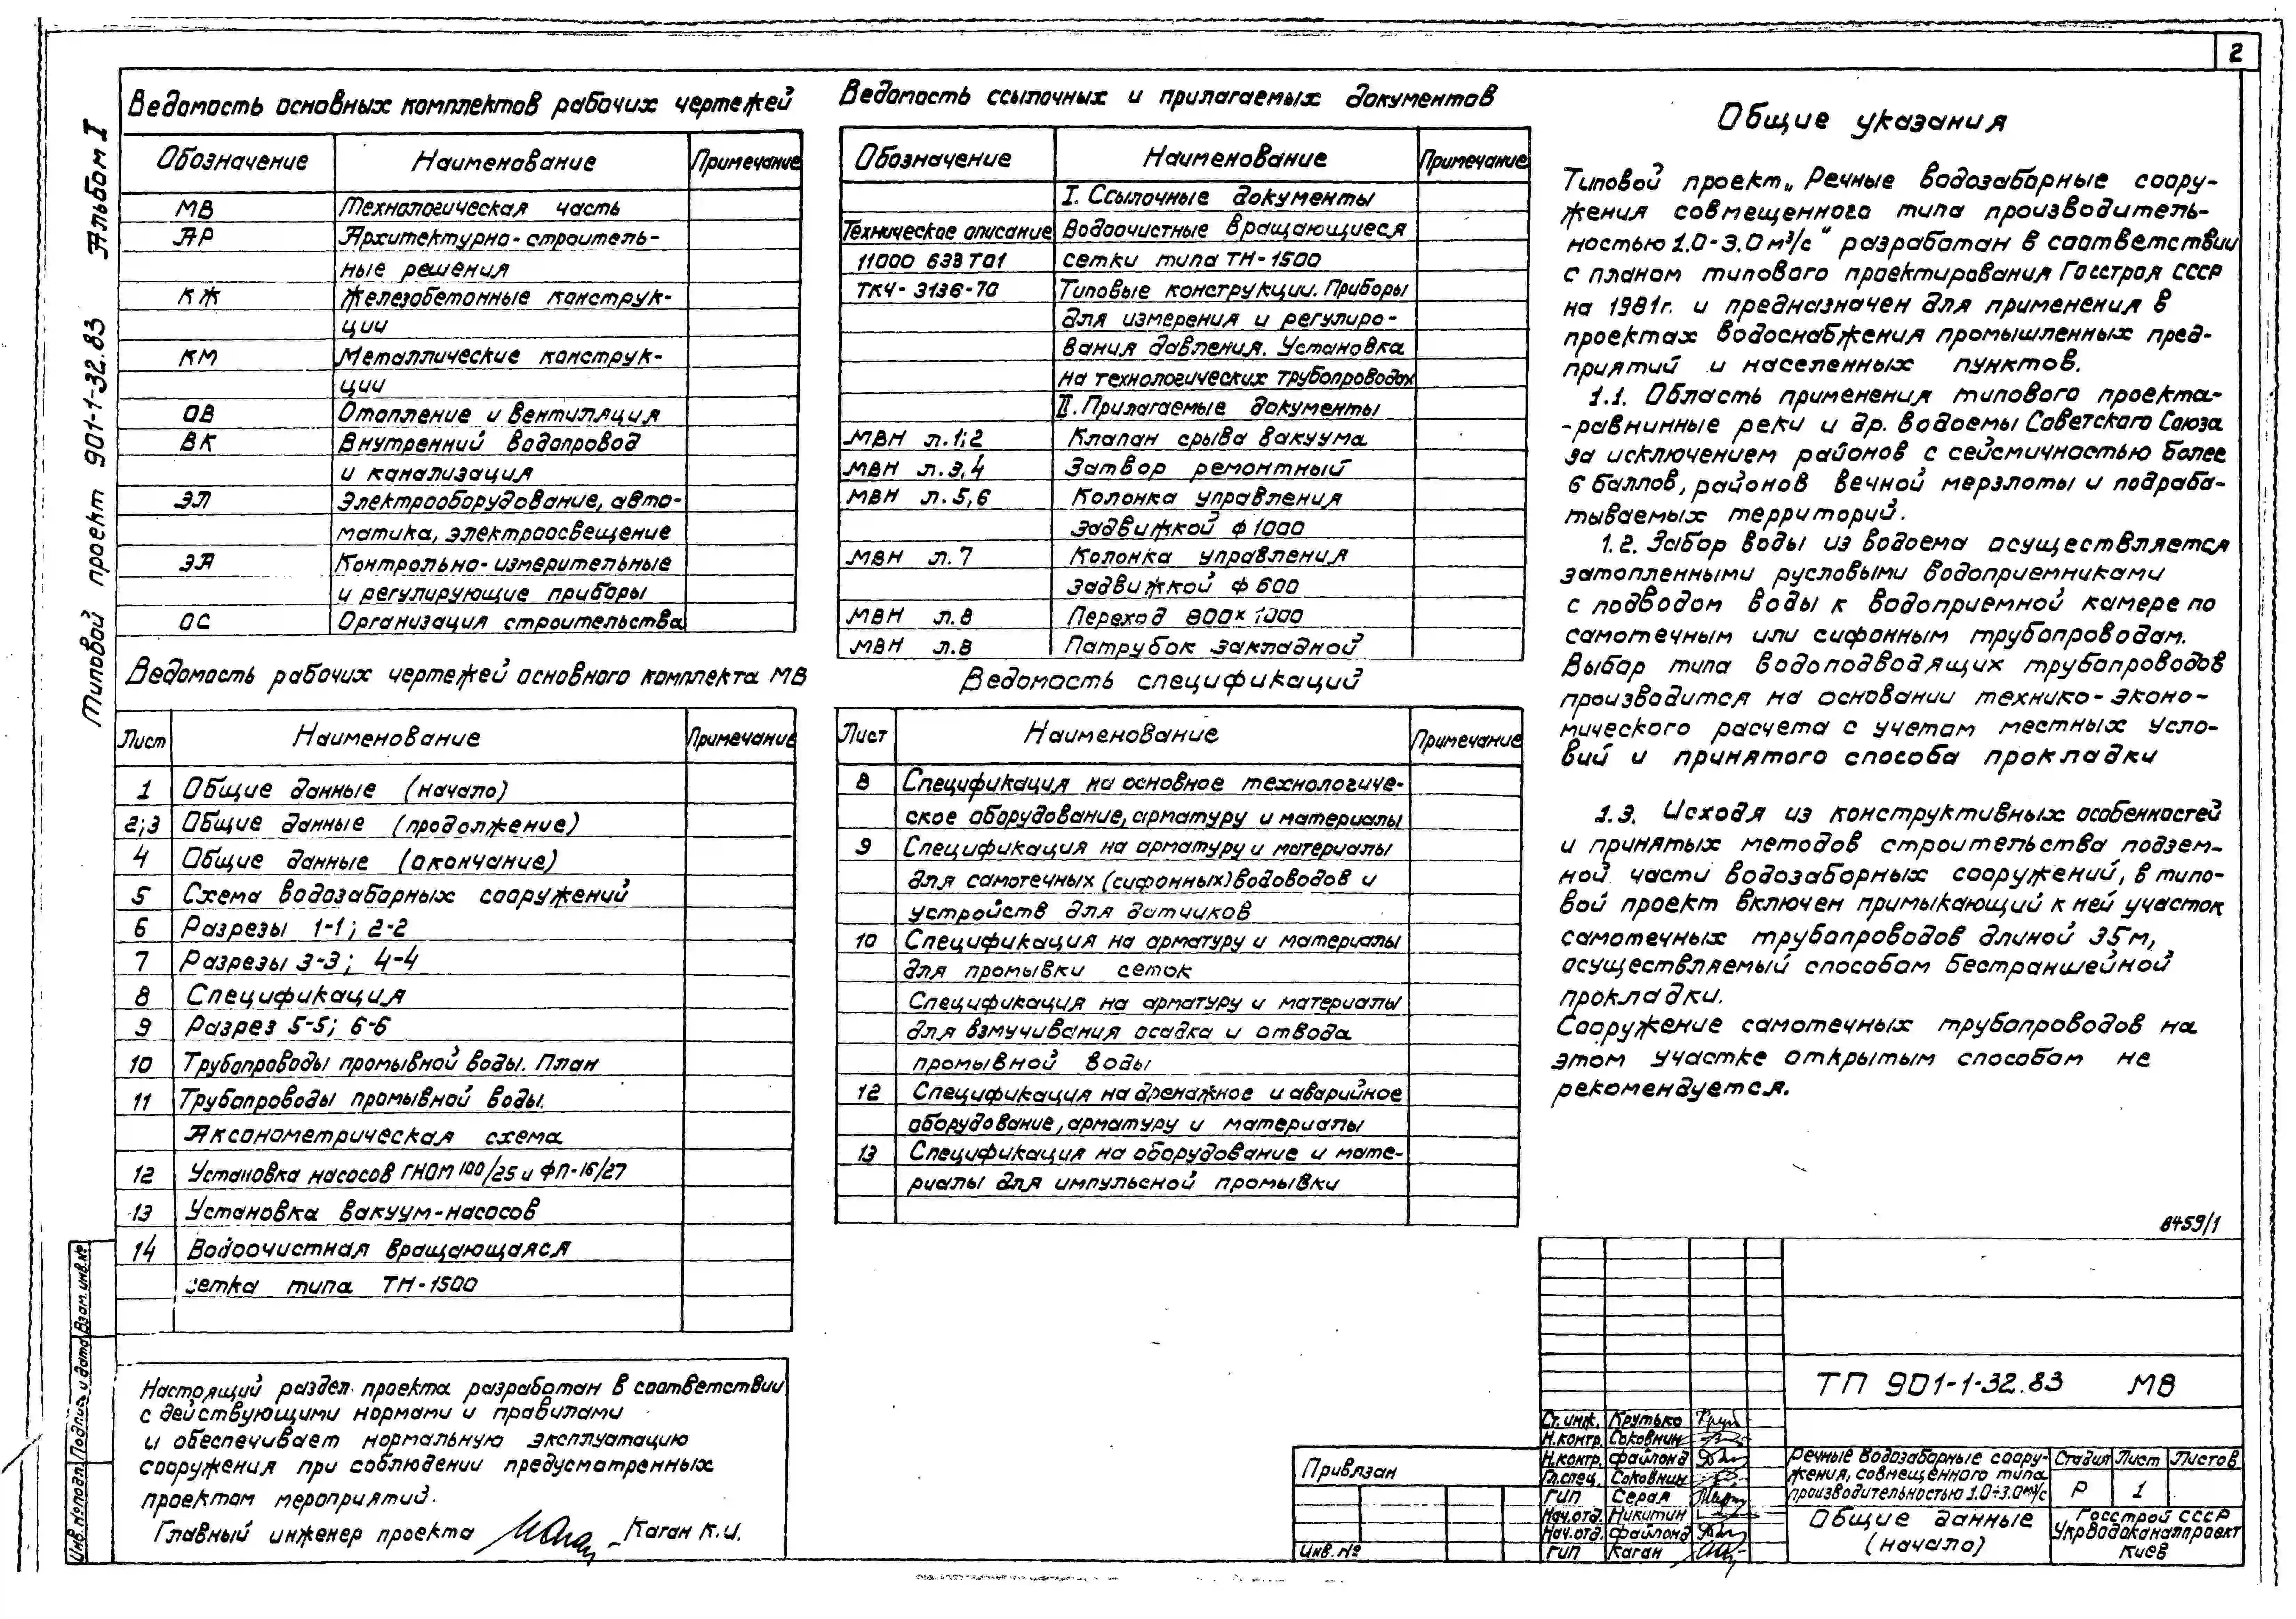 2
Альбом I
Типовой проект 901-1-32.83
Ведомость основных комплектов рабочих чертежей
Обозначение Наименование Примечание
МВ Технологическая часть
АР Архитектурно-строитель-
ные решения
КЖ Железобетонные конструк-
ции
КМ Металлические конструк-
ции
ОВ Отопление и вентиляция
ВК Внутренний водопровод
и канализация
ЭЛ Электрооборудование, авто-
матика, электроосвещение
ЭА Контрольно-измерительные
и регулирующие приборы
ОС Организация строительства
Ведомость рабочих чертежей основного комплекта МВ
Лист Наименование Примечание
1 Общие данные (начало)
2;3 Общие данные (продолжение)
4 Общие данные (окончание)
5 Схема водозаборных сооружений
6 Разрезы 1-1; 2-2
7 Разрезы 3-3; 4-4
8 Спецификация
9 Разрез 5-5; 6-6
10 Трубопроводы промывной воды. План
11 Трубопроводы промывной воды.
Аксонометрическая схема
12 Установка насосов ГНОМ 100/25 и ФП-16/27
13 Установка вакуум-насосов
14 Водоочистная вращающаяся
сетка типа ТН-1500
Настоящий раздел проекта разработан в соответствии
с действующими нормами и правилами
и обеспечивает нормальную эксплуатацию
сооружения при соблюдении предусмотренных
проектом мероприятий.
Главный инженер проекта Каган К.И.
Ведомость ссылочных и прилагаемых документов
Обозначение Наименование Примечание
I. Ссылочные документы
Техническое описание Водоочистные вращающиеся
11000 633 ТО1 сетки типа ТН-1500
ТКЧ-3136-70 Типовые конструкции. Приборы
для измерения и регулиро-
вания давления. Установка
на технологических трубопроводах
II. Прилагаемые документы
МВН л.1;2 Клапан срыва вакуума
МВН л.3,4 Затвор ремонтный
МВН л.5,6 Колонка управления
задвижкой ф 1000
МВН л.7 Колонка управления
задвижкой ф 600
МВН л.8 Переход 800×1000
МВН л.8 Патрубок закладной
Ведомость спецификаций
Лист Наименование Примечание
8 Спецификация на основное технологиче-
ское оборудование, арматуру и материалы
9 Спецификация на арматуру и материалы
для самотечных (сифонных) водоводов и
устройств для датчиков
10 Спецификация на арматуру и материалы
для промывки сеток
Спецификация на арматуру и материалы
для взмучивания осадка и отвода
промывной воды
12 Спецификация на дренажное и аварийное
оборудование, арматуру и материалы
13 Спецификация на оборудование и мате-
риалы для импульсной промывки
Общие указания
Типовой проект „Речные водозаборные соору-
жения совмещенного типа производитель-
ностью 1.0-3.0 м³/с“ разработан в соответствии
с планом типового проектирования Госстроя СССР
на 1981г. и предназначен для применения в
проектах водоснабжения промышленных пред-
приятий и населенных пунктов.
1.1. Область применения типового проекта-
-равнинные реки и др. водоемы Советского Союза
за исключением районов с сейсмичностью более
6 баллов, районов вечной мерзлоты и подраба-
тываемых территорий.
1.2. Забор воды из водоема осуществляется
затопленными русловыми водоприемниками
с подводом воды к водоприемной камере по
самотечным или сифонным трубопроводам.
Выбор типа водоподводящих трубопроводов
производится на основании технико-эконо-
мического расчета с учетом местных усло-
вий и принятого способа прокладки
1.3. Исходя из конструктивных особенностей
и принятых методов строительства подзем-
ной части водозаборных сооружений, в типо-
вой проект включен примыкающий к ней участок
самотечных трубопроводов длиной 35м,
осуществляемый способом бестраншейной
прокладки.
Сооружение самотечных трубопроводов на
этом участке открытым способом не
рекомендуется.
8459/1
ТП 901-1-32.83 МВ
Ст. инж. Крутько
Н.контр. Соковнин
Н.контр. Файлонд
Гл.спец. Соковнин
ГИП Серая
Нач.отд. Никитин
Нач.отд. Файлонд
ГИП Каган
Речные водозаборные соору-
жения, совмещенного типа
производительностью 1.0÷3.0м³/с
Стадия Лист Листов
Р 1
Общие данные
(начало)
Госстрой СССР
Укрводоканалпроект
Киев
Привязан
Инв.№
Инв.№подл. Подпись и дата Взам.инв.№